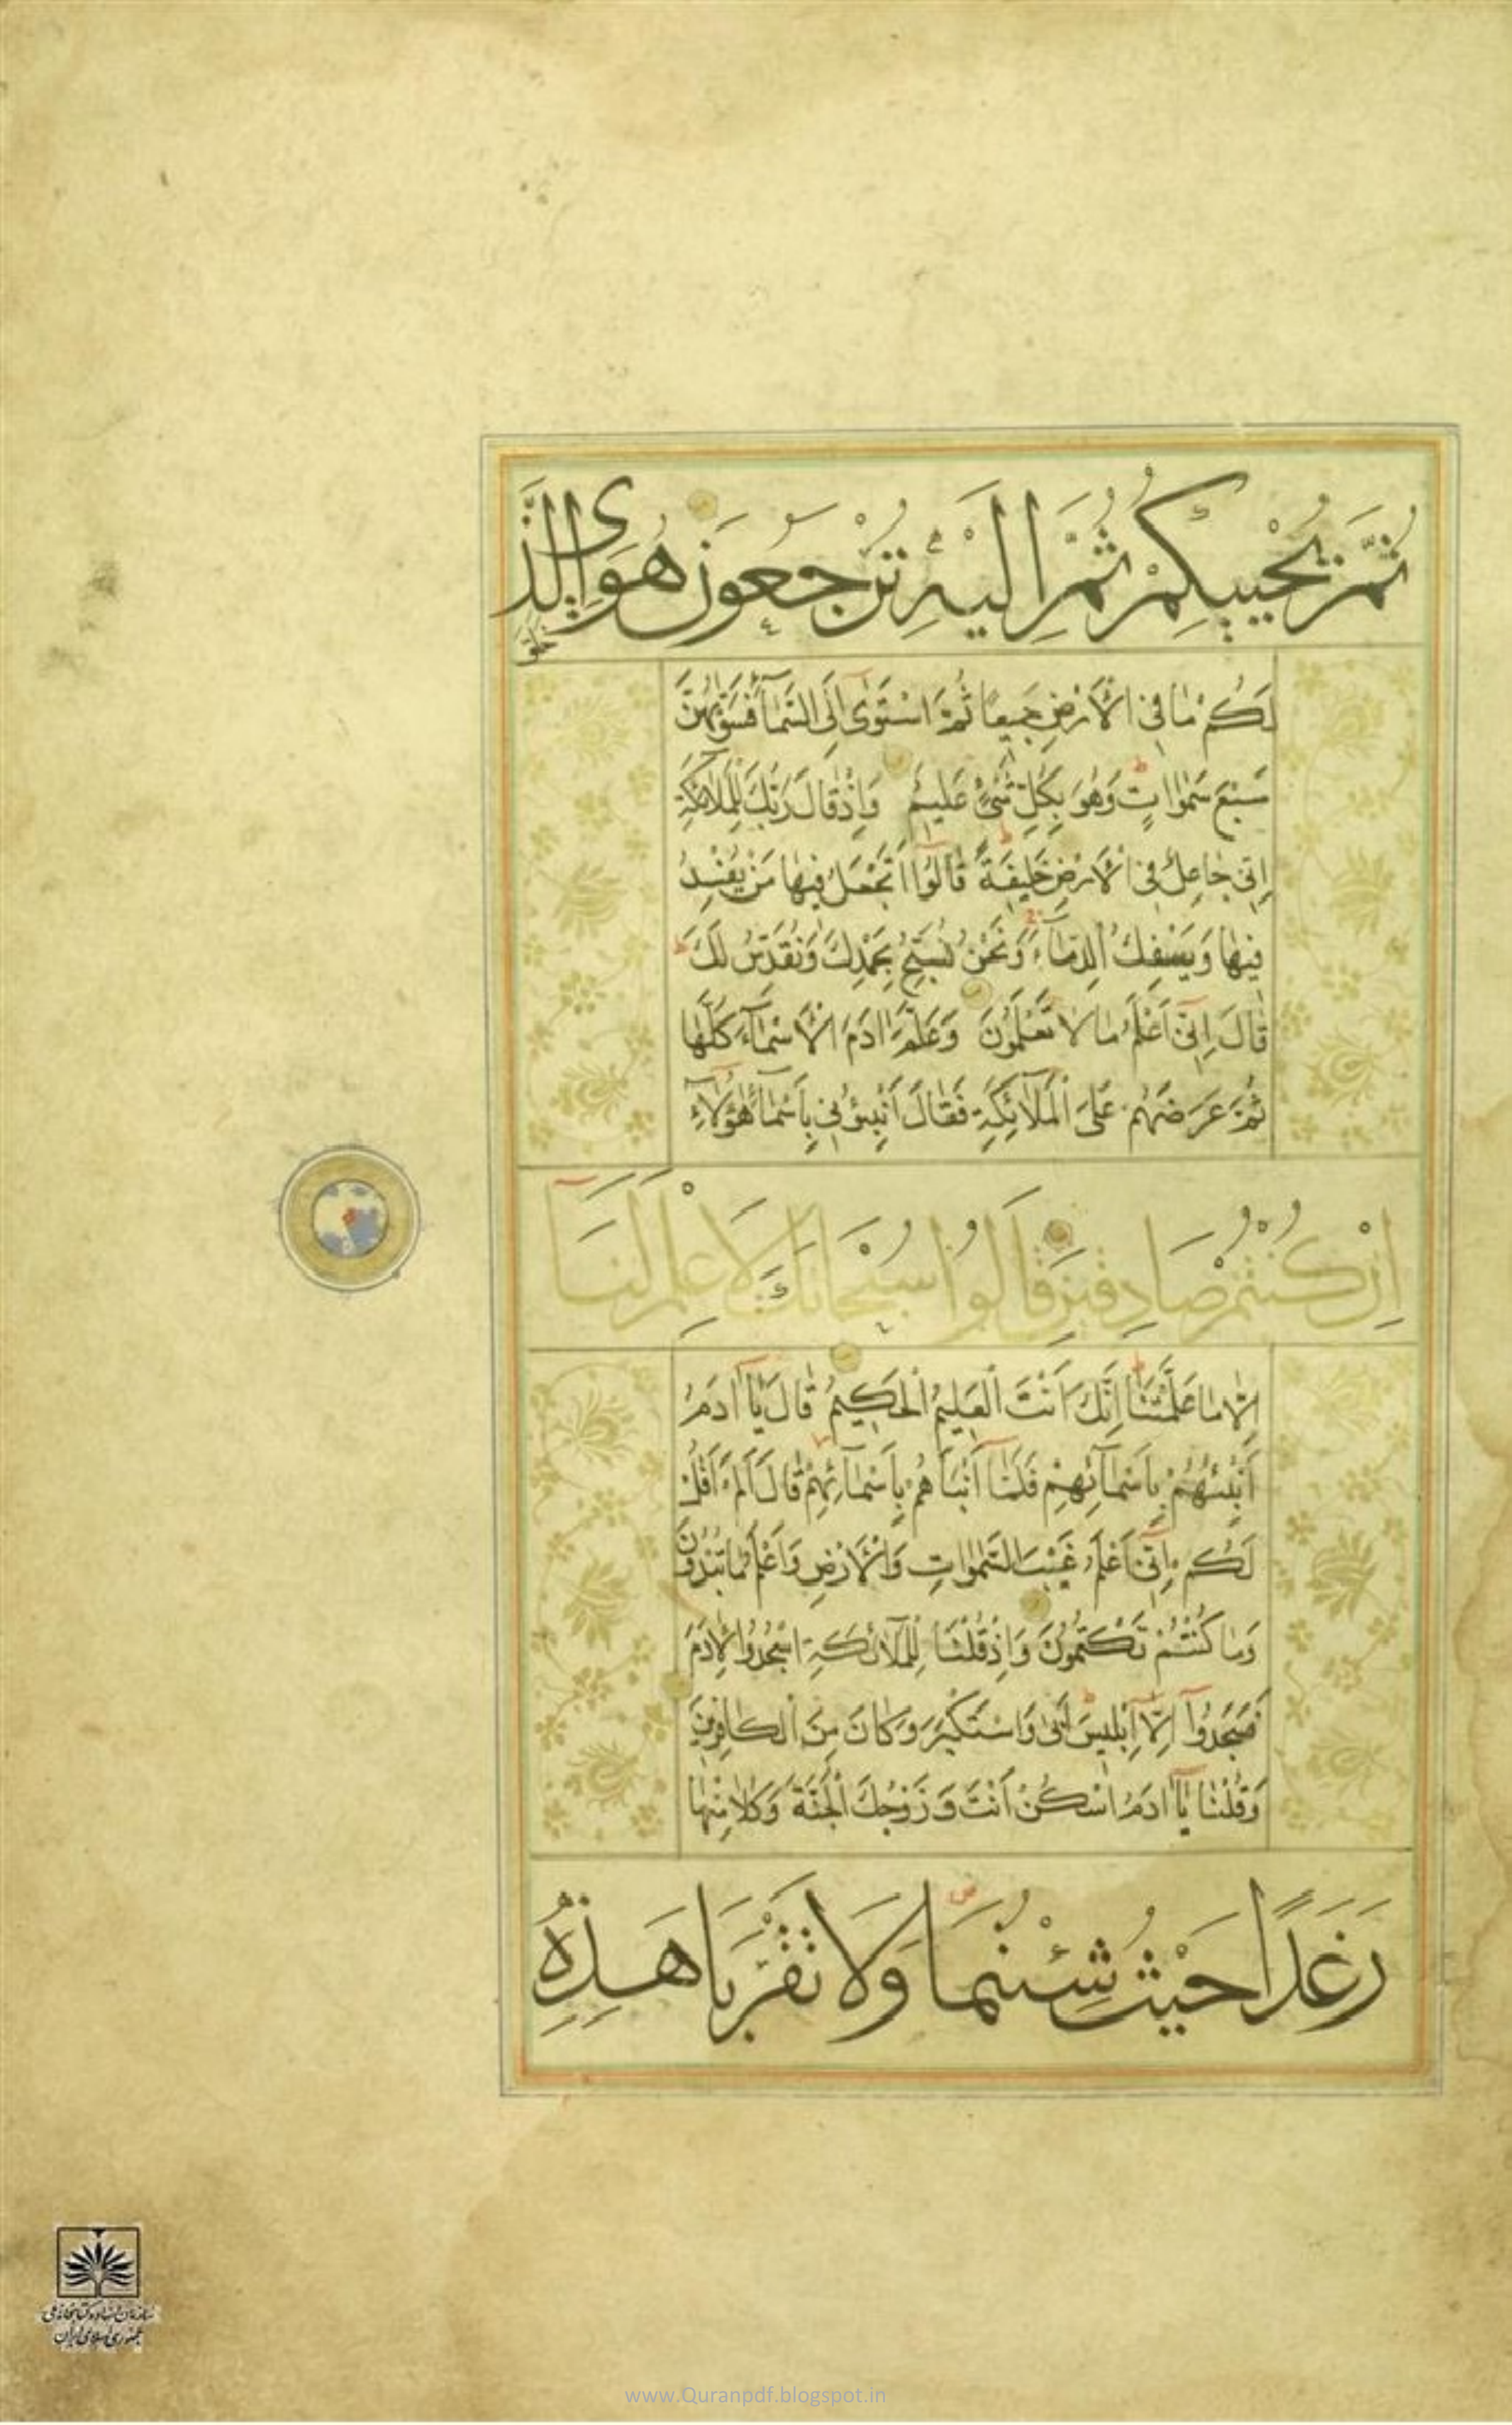 ثُمَّ يُحْيِيكُمْ ثُمَّ اِلَيْهِ تُرْجَعُونَ هُوَ الَّذِى
خَلَقَ
لَكُمْ مَا فِى الْاَرْضِ جَمِيعًا ثُمَّ اسْتَوٰى اِلَى السَّمَآءِ فَسَوّٰيهُنَّ
سَبْعَ سَمٰوَاتٍ وَهُوَ بِكُلِّ شَىْءٍ عَلِيمٌ وَاِذْ قَالَ رَبُّكَ لِلْمَلٰٓئِكَةِ
اِنِّى جَاعِلٌ فِى الْاَرْضِ خَلِيفَةً قَالُوٓا اَتَجْعَلُ فِيهَا مَنْ يُفْسِدُ
فِيهَا وَيَسْفِكُ الدِّمَآءَ وَنَحْنُ نُسَبِّحُ بِحَمْدِكَ وَنُقَدِّسُ لَكَ
قَالَ اِنِّىٓ اَعْلَمُ مَا لَا تَعْلَمُونَ وَعَلَّمَ اٰدَمَ الْاَسْمَآءَ كُلَّهَا
ثُمَّ عَرَضَهُمْ عَلَى الْمَلٰٓئِكَةِ فَقَالَ اَنْبِئُونِى بِاَسْمَآءِ هٰٓؤُلَآءِ
اِنْ كُنْتُمْ صَادِقِينَ قَالُوا سُبْحَانَكَ لَا عِلْمَ لَنَآ
اِلَّا مَا عَلَّمْتَنَا اِنَّكَ اَنْتَ الْعَلِيمُ الْحَكِيمُ قَالَ يَآ اٰدَمُ
اَنْبِئْهُمْ بِاَسْمَآئِهِمْ فَلَمَّآ اَنْبَاَهُمْ بِاَسْمَآئِهِمْ قَالَ اَلَمْ اَقُلْ
لَكُمْ اِنِّىٓ اَعْلَمُ غَيْبَ السَّمٰوَاتِ وَالْاَرْضِ وَاَعْلَمُ مَا تُبْدُونَ
وَمَا كُنْتُمْ تَكْتُمُونَ وَاِذْ قُلْنَا لِلْمَلٰٓئِكَةِ اسْجُدُوا لِاٰدَمَ
فَسَجَدُوٓا اِلَّآ اِبْلِيسَ اَبٰى وَاسْتَكْبَرَ وَكَانَ مِنَ الْكَافِرِينَ
وَقُلْنَا يَآ اٰدَمُ اسْكُنْ اَنْتَ وَزَوْجُكَ الْجَنَّةَ وَكُلَا مِنْهَا
رَغَدًا حَيْثُ شِئْتُمَا وَلَا تَقْرَبَا هَذِهِ
سازمان اسناد و کتابخانه ملی
جمهوری اسلامی ایران
www.Quranpdf.blogspot.in